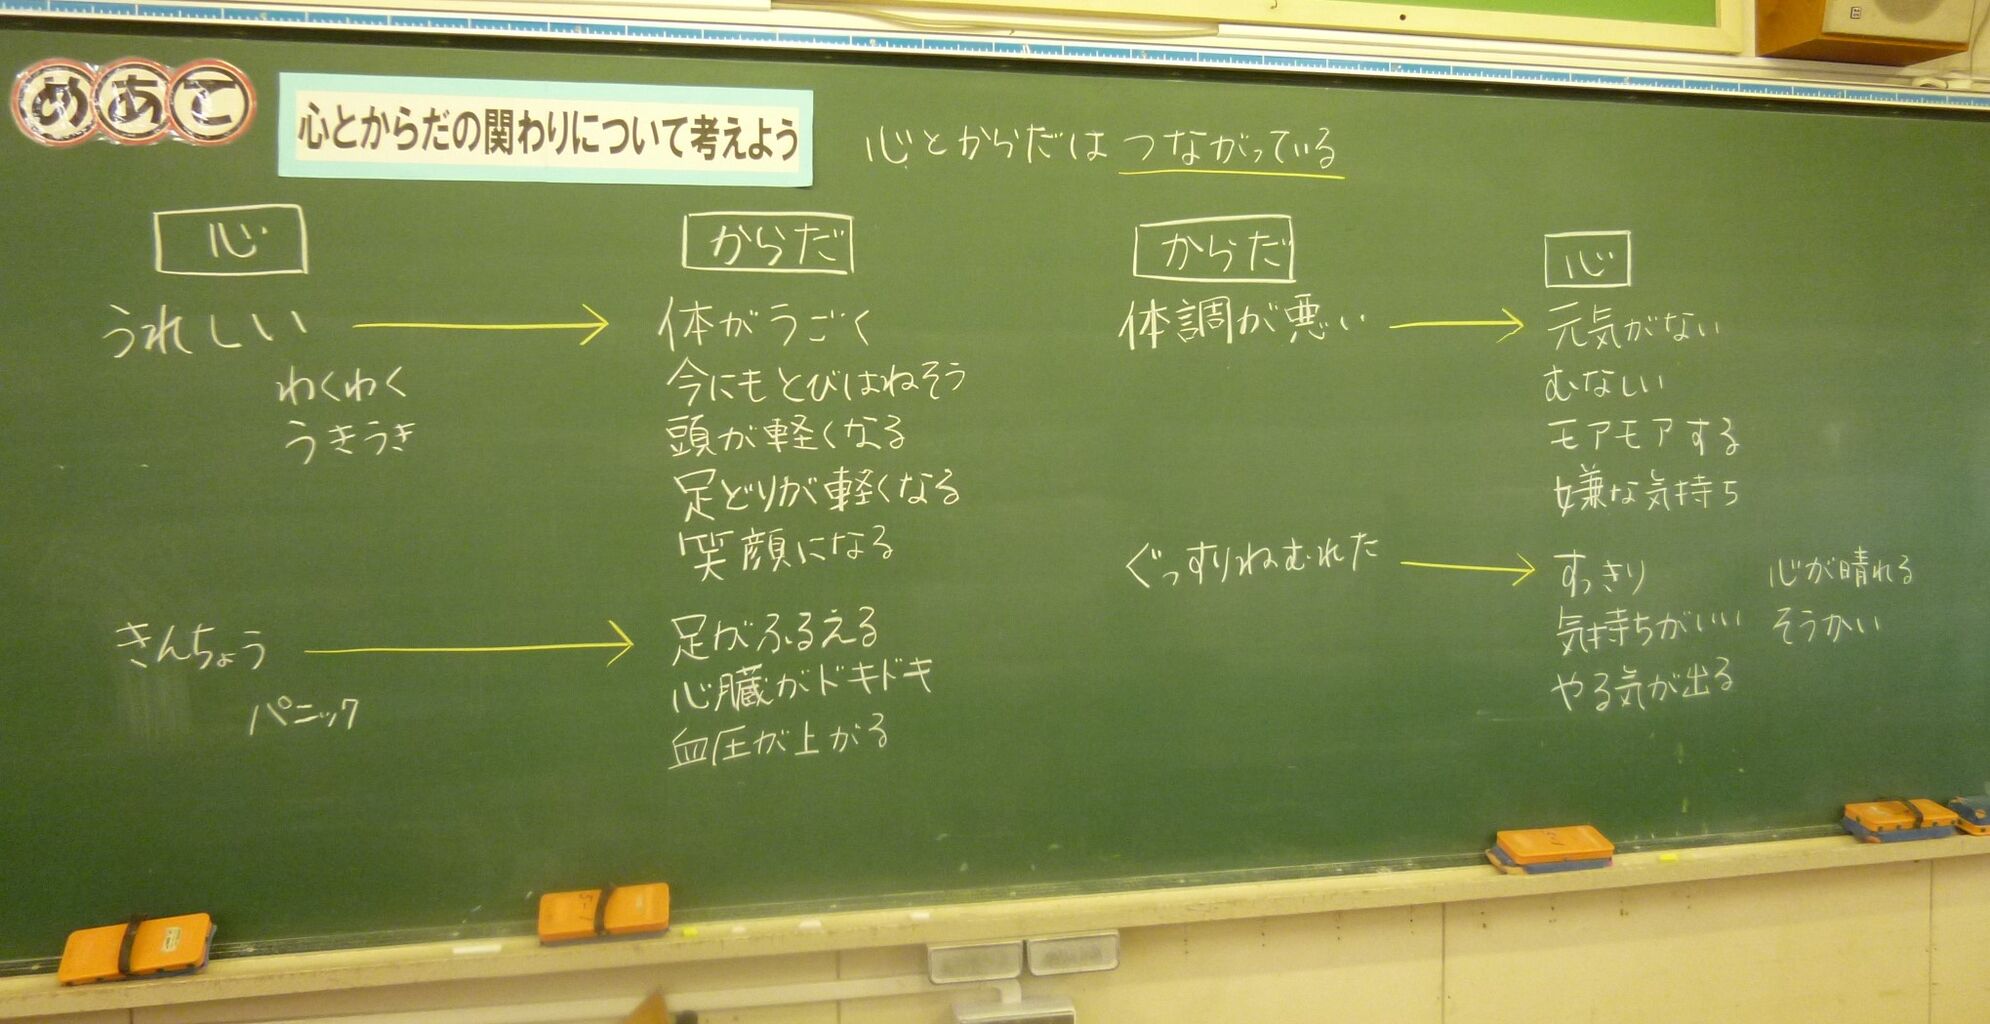 めあて
心とからだの関わりについて考えよう
心とからだは つながっている
心
うれしい
わくわく
うきうき
きんちょう
パニック
からだ
体がうごく
今にもとびはねそう
頭が軽くなる
足どりが軽くなる
笑顔になる
足がふるえる
心臓がドキドキ
血圧が上がる
からだ
体調が悪い
ぐっすりねむれた
心
元気がない
むなしい
モアモアする
嫌な気持ち
すっきり
気持ちがいい
やる気が出る
心が晴れる
そうかい
5-1